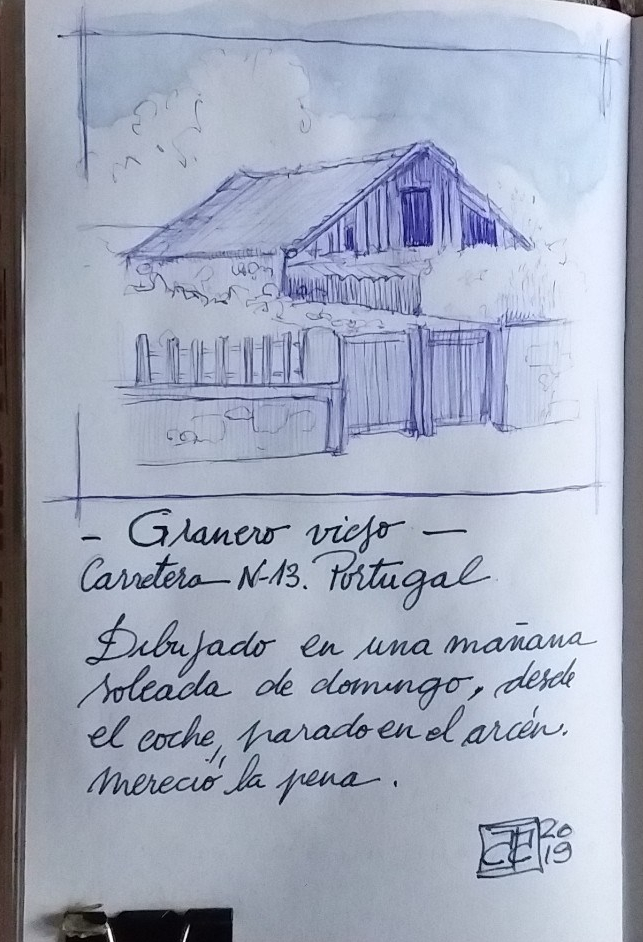 - Granero viejo -
Carretera N-13. Portugal
Dibujado en una mañana
soleada de domingo, desde
el coche, parado en el arcén.
Mereció la pena.
2019